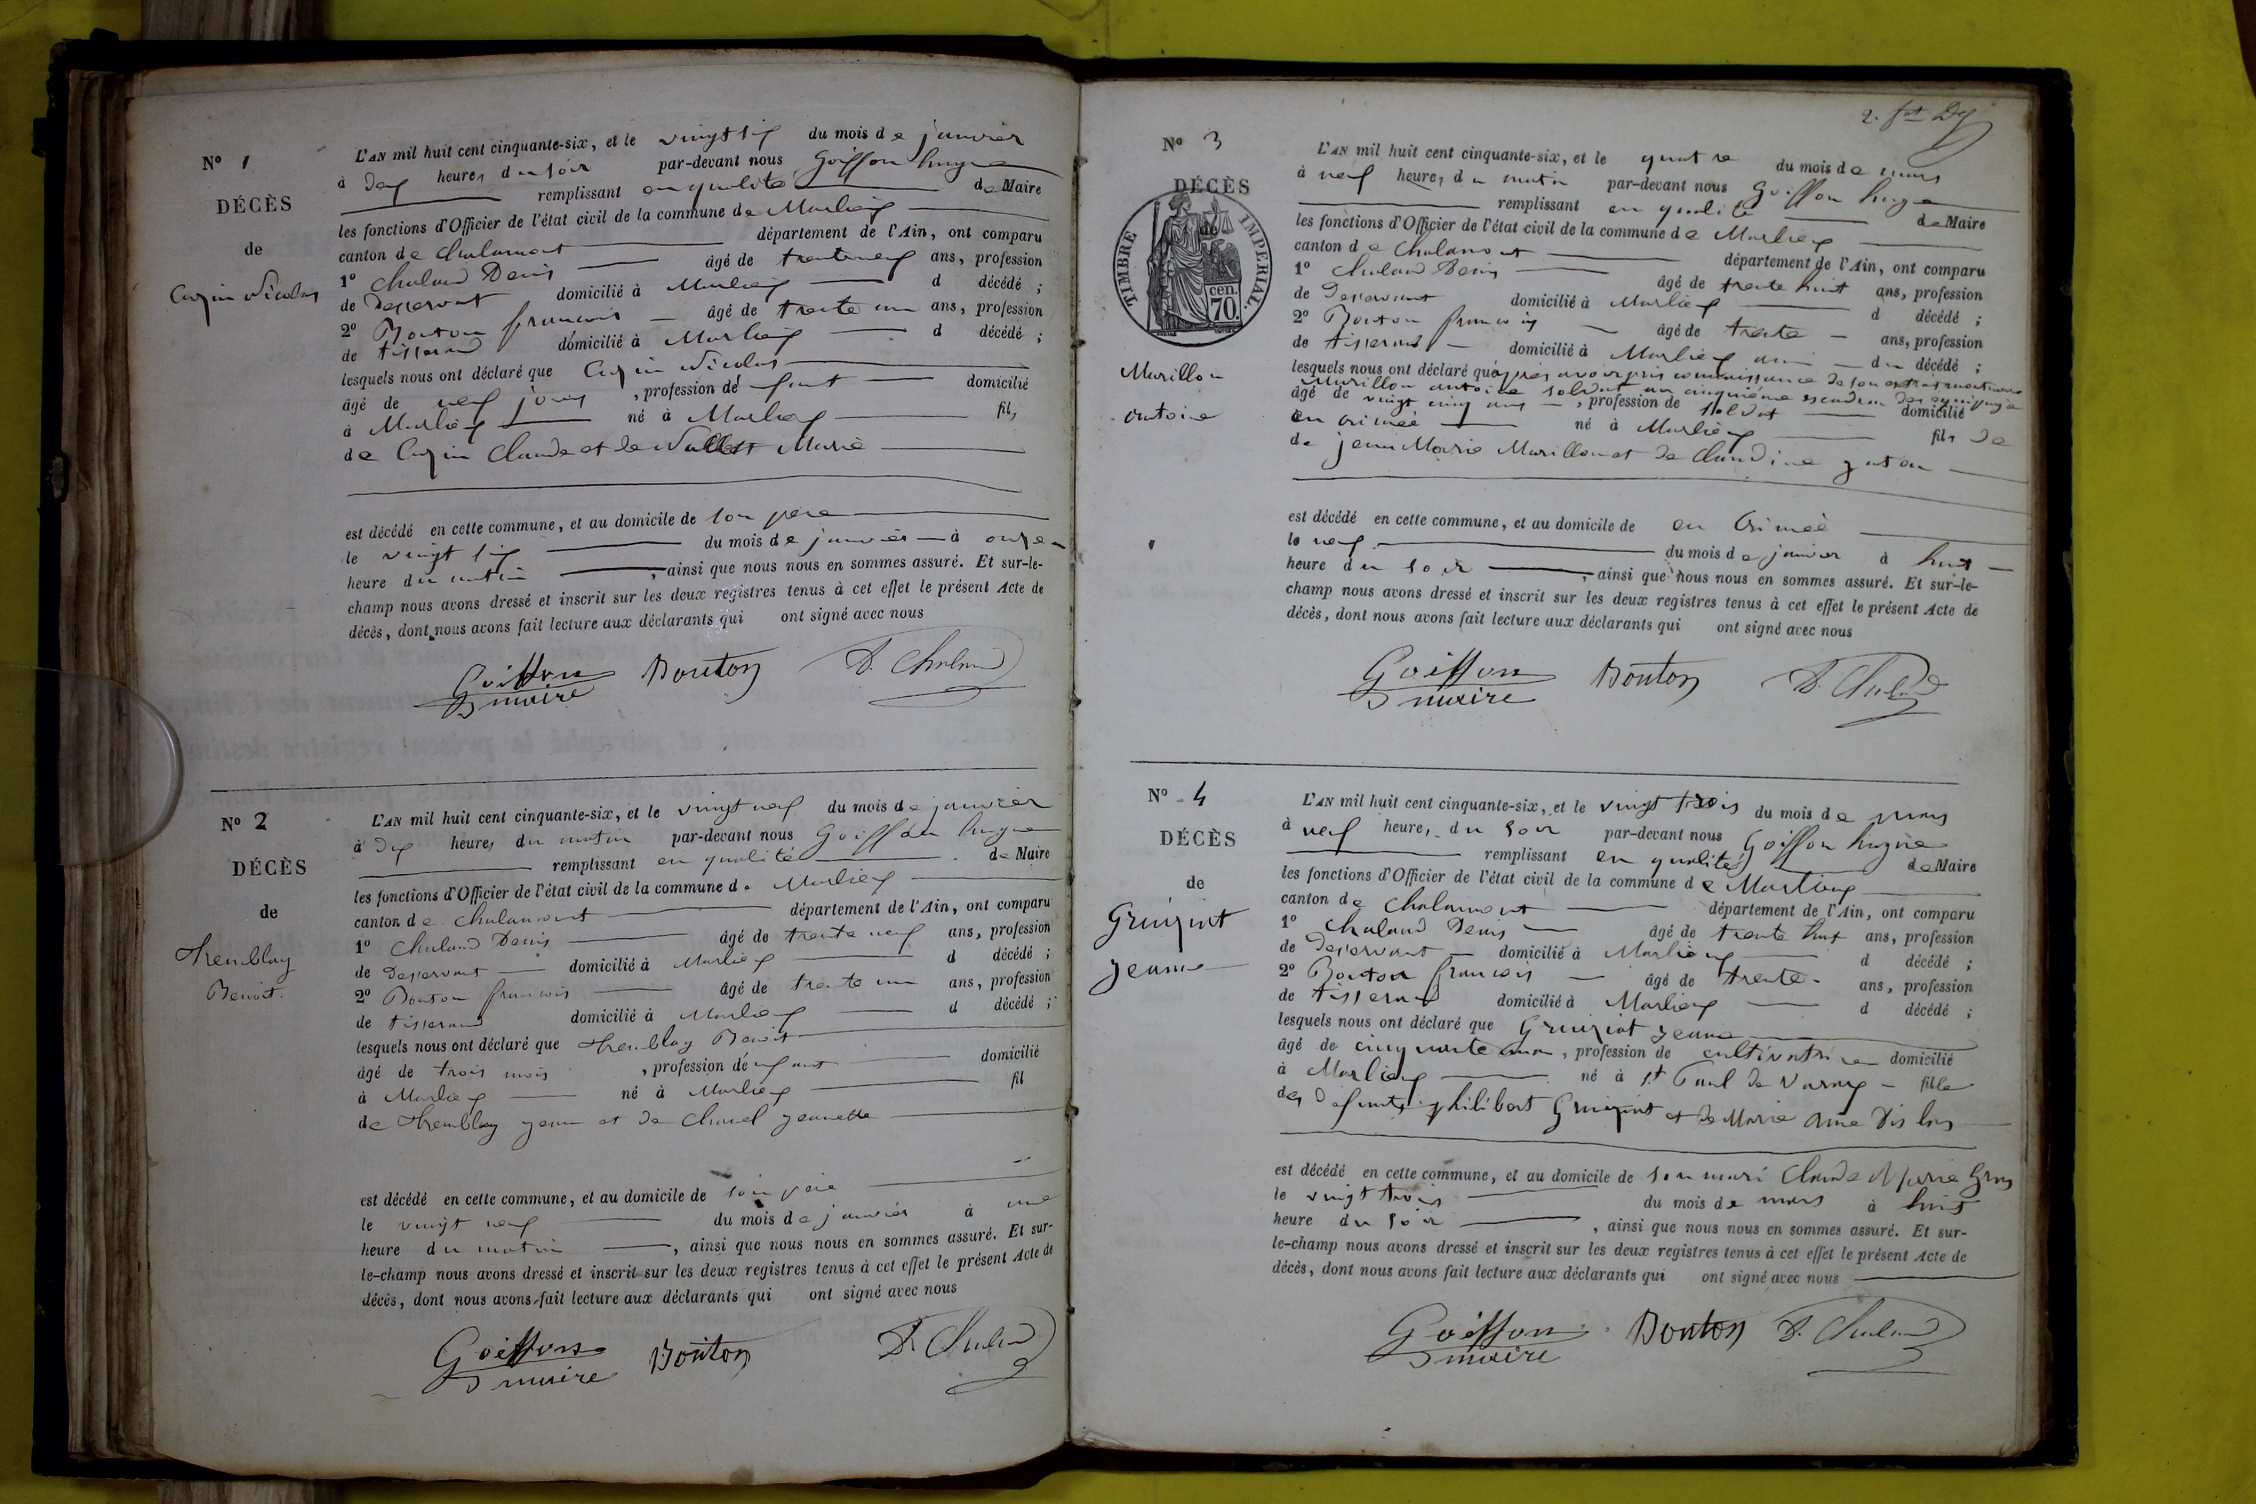 N° 1
DÉCÈS
de
Cuzin Nicolas
L'AN mil huit cent cinquante-six, et le vingt six du mois de janvier
à deux heures du soir par-devant nous Goiffon hugne
remplissant en qualité de Maire
les fonctions d'Officier de l'état civil de la commune de Marlieux
canton de Chalamont département de l'Ain, ont comparu
1° Chaland Denis âgé de trente neuf ans, profession
de Desservant domicilié à Marlieux d décédé ;
2° Bouton françois âgé de trente un ans, profession
de tisserand domicilié à Marlieux d décédé ;
lesquels nous ont déclaré que Cuzin Nicolas
âgé de neuf jours, profession d'enfant domicilié
à Marlieux né à Marlieux fils
de Cuzin Claude et de Marie
est décédé en cette commune, et au domicile de son père
le vingt six du mois de janvier à onze
heure du matin, ainsi que nous nous en sommes assuré. Et sur-le-
champ nous avons dressé et inscrit sur les deux registres tenus à cet effet le présent Acte de
décès, dont nous avons fait lecture aux déclarants qui ont signé avec nous
Goiffon Bouton D. Chaland
maire
N° 2
DÉCÈS
de
Tremblay
Benoit
L'AN mil huit cent cinquante-six, et le vingt neuf du mois de janvier
à dix heures du matin par-devant nous Goiffon hugne
remplissant en qualité de Maire
les fonctions d'Officier de l'état civil de la commune d. Marlieux
canton de Chalamont département de l'Ain, ont comparu
1° Chaland Denis âgé de trente neuf ans, profession
de Desservant domicilié à Marlieux d décédé ;
2° Bouton françois âgé de trente un ans, profession
de tisserand domicilié à Marlieux d décédé ;
lesquels nous ont déclaré que Tremblay Benoit
âgé de trois mois, profession d'enfant domicilié
à Marlieux né à Marlieux fil
de Tremblay jean et de Charvel jeannette
est décédé en cette commune, et au domicile de son père
le vingt neuf du mois de janvier à une
heure du matin, ainsi que nous nous en sommes assuré. Et sur-
le-champ nous avons dressé et inscrit sur les deux registres tenus à cet effet le présent Acte de
décès, dont nous avons fait lecture aux déclarants qui ont signé avec nous
Goiffon Bouton D. Chaland
maire
2.
N° 3
DÉCÈS
de
TIMBRE IMPÉRIAL.
cen.
70.
Murillon
antoine
L'AN mil huit cent cinquante-six, et le quatre du mois de mars
à neuf heures du matin par-devant nous Goiffon hugne
remplissant en qualité de Maire
les fonctions d'Officier de l'état civil de la commune de Marlieux
canton de Chalamont département de l'Ain, ont comparu
1° Chaland Denis âgé de trente huit ans, profession
de Desservant domicilié à Marlieux d décédé ;
2° Bouton françois âgé de trente ans, profession
de tisserand domicilié à Marlieux ami du décédé ;
lesquels nous ont déclaré qu'après avoir pris connaissance de son extrait mortuaire
Murillon antoine soldat au cinquième escadron des équipages
âgé de vingt cinq ans, profession de soldat domicilié
en crimée né à Marlieux fils de
de jean Marie Murillon et de Claudine
est décédé en cette commune, et au domicile de en Crimeè
le neuf du mois de janvier à huit
heure du soir, ainsi que nous nous en sommes assuré. Et sur-le-
champ nous avons dressé et inscrit sur les deux registres tenus à cet effet le présent Acte de
décès, dont nous avons fait lecture aux déclarants qui ont signé avec nous
Goiffon Bouton D. Chaland
maire
N° 4
DÉCÈS
de
Gruiziat
jeanne
L'AN mil huit cent cinquante-six, et le vingt trois du mois de mars
à neuf heures du soir par-devant nous Goiffon hugne
remplissant en qualité de Maire
les fonctions d'Officier de l'état civil de la commune de Marlieux
canton de Chalamont département de l'Ain, ont comparu
1° Chaland Denis âgé de trente huit ans, profession
de Desservant domicilié à Marlieux d décédé ;
2° Bouton françois âgé de trente ans, profession
de tisserand domicilié à Marlieux d décédé ;
lesquels nous ont déclaré que Gruiziat jeanne
âgé de cinquante, profession de cultivatrice domicilié
à Marlieux né à St Paul de Varax fille
des defunts philibert Gruiziat et de Marie Anne
est décédé en cette commune, et au domicile de son mari Claude Marie Gros
le vingt trois du mois de mars à huit
heure du soir, ainsi que nous nous en sommes assuré. Et sur-
le-champ nous avons dressé et inscrit sur les deux registres tenus à cet effet le présent Acte de
décès, dont nous avons fait lecture aux déclarants qui ont signé avec nous
Goiffon Bouton D. Chaland
maire